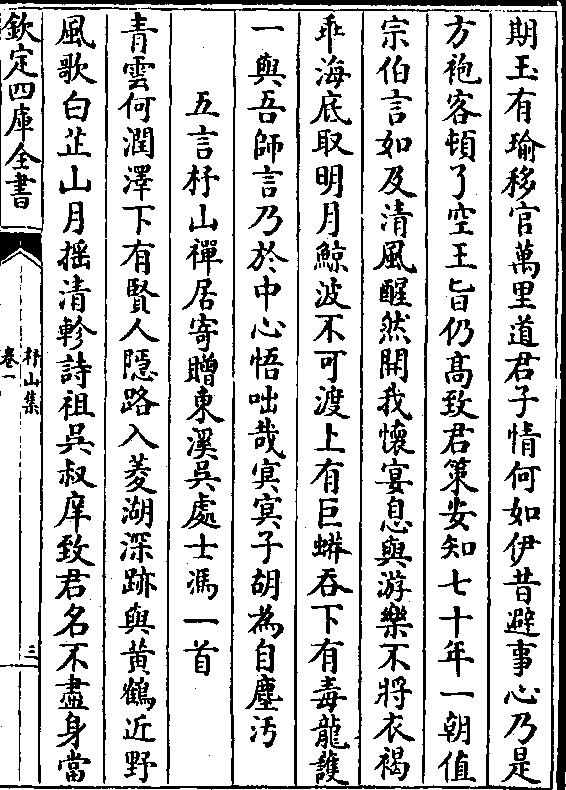 期玉有瑜移官萬里道君子情何如伊昔避事心乃是
方袍客頓了空王旨仍高致君策安知七十年一朝值
宗伯言如及清風醒然開我懷宴息與游樂不將衣褐
乖海底取明月鯨波不可渡上有巨蟒吞下有毒龍護
一與吾師言乃於中心悟咄哉冥冥子胡為自塵汚
五言杼山禪居寄贈東溪吳處士馮一首
青雲何潤澤下有賢人隱路入菱湖深跡與黃鶴近野
風歌白芷山月摇清軫詩祖吳叔庠致君名不盡身當
欽定四庫全書
杼山集
卷一
三